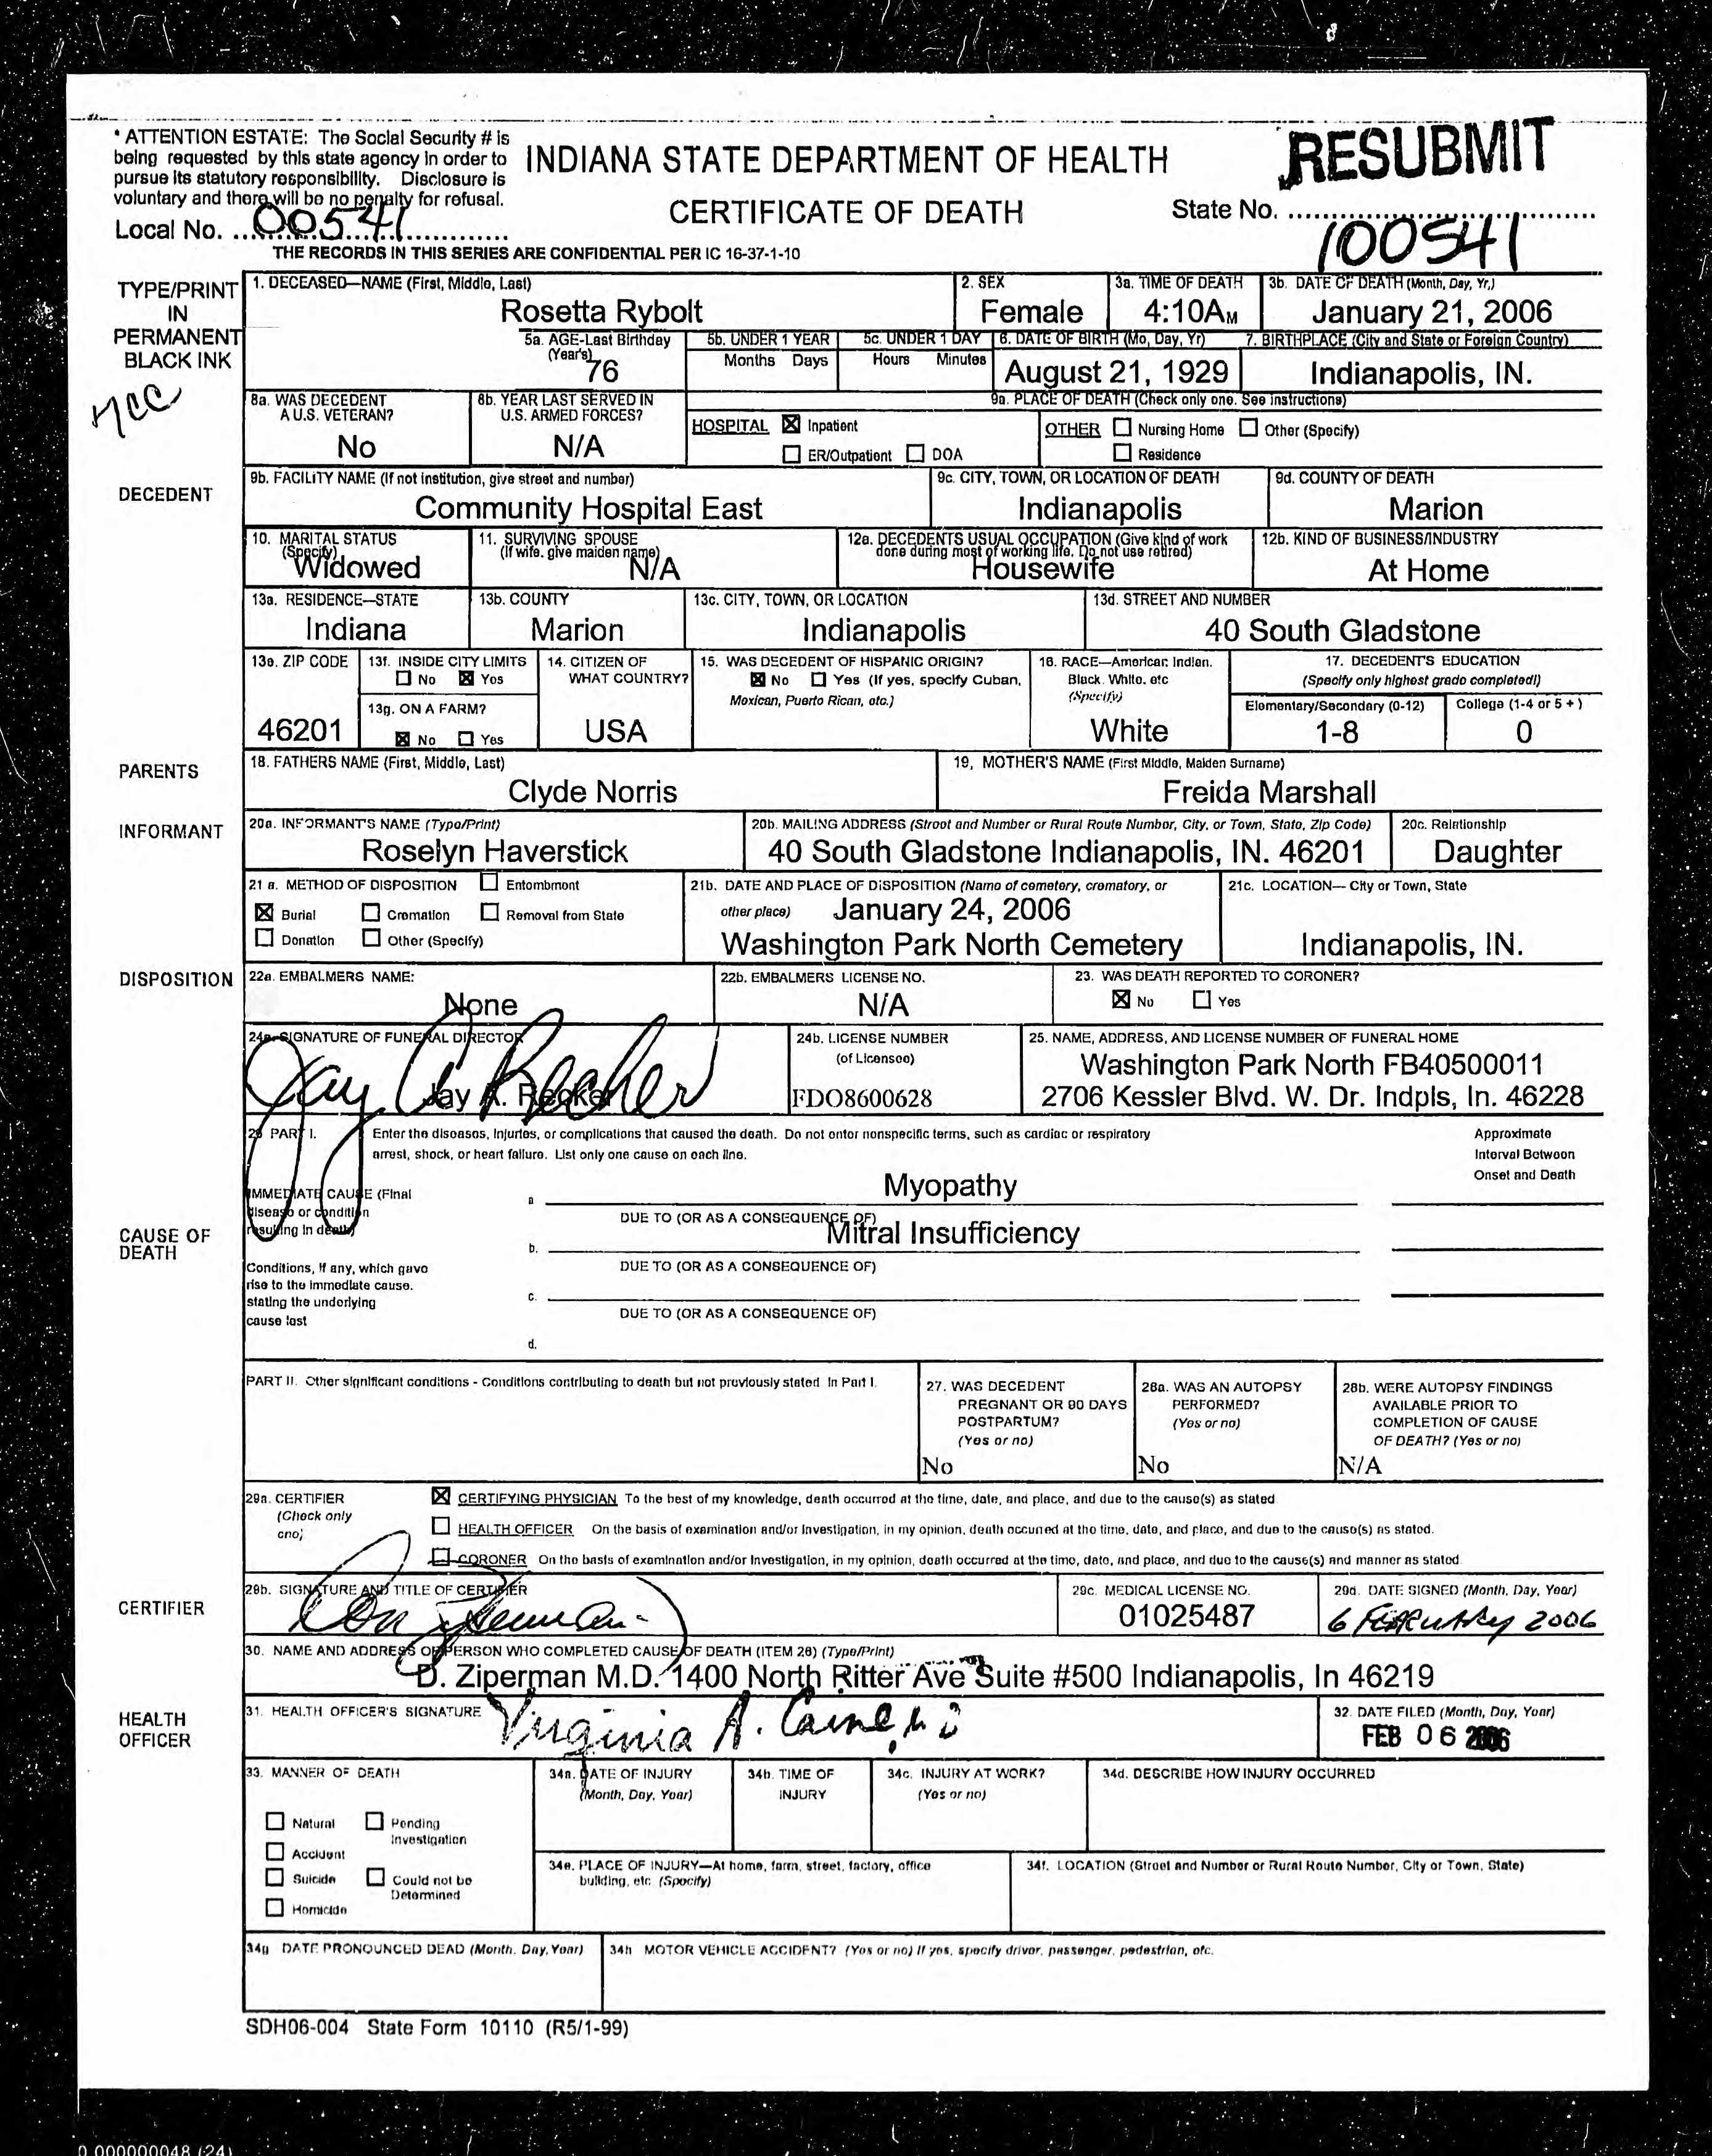 * ATTENTION ESTATE: The Social Security # is
being requested by this state agency in order to
pursue its statutory responsibility. Disclosure is
voluntary and there will be no penalty for refusal.
INDIANA STATE DEPARTMENT OF HEALTH
RESUBMIT
CERTIFICATE OF DEATH
Local No. 00541
State No.
100541
THE RECORDS IN THIS SERIES ARE CONFIDENTIAL PER IC 16-37-1-10
TYPE/PRINT
IN
PERMANENT
BLACK INK
1. DECEASED—NAME (First, Middle, Last)
Rosetta Rybolt
2. SEX
Female
3a. TIME OF DEATH
4:10AM
3b. DATE OF DEATH (Month, Day, Yr,)
January 21, 2006
5a. AGE-Last Birthday
(Years)
76
5b. UNDER 1 YEAR
Months Days
5c. UNDER 1 DAY
Hours Minutes
6. DATE OF BIRTH (Mo, Day, Yr)
August 21, 1929
7. BIRTHPLACE (City and State or Foreign Country)
Indianapolis, IN.
8a. WAS DECEDENT
A U.S. VETERAN?
No
8b. YEAR LAST SERVED IN
U.S. ARMED FORCES?
N/A
9a. PLACE OF DEATH (Check only one. See instructions)
HOSPITAL ☒ Inpatient
☐ ER/Outpatient ☐ DOA
OTHER ☐ Nursing Home ☐ Other (Specify)
☐ Residence
DECEDENT
9b. FACILITY NAME (If not institution, give street and number)
Community Hospital East
9c. CITY, TOWN, OR LOCATION OF DEATH
Indianapolis
9d. COUNTY OF DEATH
Marion
10. MARITAL STATUS
(Specify)
Widowed
11. SURVIVING SPOUSE
(If wife, give maiden name)
N/A
12a. DECEDENTS USUAL OCCUPATION (Give kind of work
done during most of working life. Do not use retired)
Housewife
12b. KIND OF BUSINESS/INDUSTRY
At Home
13a. RESIDENCE—STATE
Indiana
13b. COUNTY
Marion
13c. CITY, TOWN, OR LOCATION
Indianapolis
13d. STREET AND NUMBER
40 South Gladstone
13e. ZIP CODE
46201
13f. INSIDE CITY LIMITS
☐ No ☒ Yes
13g. ON A FARM?
☒ No ☐ Yes
14. CITIZEN OF
WHAT COUNTRY?
USA
15. WAS DECEDENT OF HISPANIC ORIGIN?
☒ No ☐ Yes (If yes, specify Cuban,
Mexican, Puerto Rican, etc.)
16. RACE—American Indian.
Black. White. etc
(Specify)
White
17. DECEDENT'S EDUCATION
(Specify only highest grade completed)
Elementary/Secondary (0-12)
1-8
College (1-4 or 5 + )
0
PARENTS
18. FATHERS NAME (First, Middle, Last)
Clyde Norris
19, MOTHER'S NAME (First Middle, Maiden Surname)
Freida Marshall
INFORMANT
20a. INFORMANT'S NAME (Type/Print)
Roselyn Haverstick
20b. MAILING ADDRESS (Street and Number or Rural Route Number, City, or Town, State, Zip Code)
40 South Gladstone Indianapolis, IN. 46201
20c. Relationship
Daughter
21 a. METHOD OF DISPOSITION ☐ Entombment
☒ Burial ☐ Cremation ☐ Removal from State
☐ Donation ☐ Other (Specify)
21b. DATE AND PLACE OF DISPOSITION (Name of cemetery, crematory, or
other place)
January 24, 2006
Washington Park North Cemetery
21c. LOCATION— City or Town, State
Indianapolis, IN.
DISPOSITION
22a. EMBALMERS NAME:
None
22b. EMBALMERS LICENSE NO.
N/A
23. WAS DEATH REPORTED TO CORONER?
☒ No ☐ Yes
24a. SIGNATURE OF FUNERAL DIRECTOR
Jay A. Recker
24b. LICENSE NUMBER
(of Licensee)
FDO8600628
25. NAME, ADDRESS, AND LICENSE NUMBER OF FUNERAL HOME
Washington Park North FB40500011
2706 Kessler Blvd. W. Dr. Indpls, In. 46228
26 PART I.
Enter the diseases, injuries, or complications that caused the death. Do not enter nonspecific terms, such as cardiac or respiratory
arrest, shock, or heart failure. List only one cause on each line.
Approximate
Interval Between
Onset and Death
CAUSE OF
DEATH
IMMEDIATE CAUSE (Final
disease or condition
resulting in death)
a Myopathy
DUE TO (OR AS A CONSEQUENCE OF)
b. Mitral Insufficiency
Conditions, if any, which gave
rise to the immediate cause.
stating the underlying
cause last
DUE TO (OR AS A CONSEQUENCE OF)
c.
DUE TO (OR AS A CONSEQUENCE OF)
d.
PART II. Other significant conditions - Conditions contributing to death but not previously stated In Part I.
27. WAS DECEDENT
PREGNANT OR 90 DAYS
POSTPARTUM?
(Yes or no)
No
28a. WAS AN AUTOPSY
PERFORMED?
(Yes or no)
No
28b. WERE AUTOPSY FINDINGS
AVAILABLE PRIOR TO
COMPLETION OF CAUSE
OF DEATH? (Yes or no)
N/A
29a. CERTIFIER
(Check only
one)
☒ CERTIFYING PHYSICIAN To the best of my knowledge, death occurred at the time, date, and place, and due to the cause(s) as stated
☐ HEALTH OFFICER On the basis of examination and/or Investigation, in my opinion, death occurred at the time, date, and place, and due to the cause(s) as stated.
☐ CORONER On the basis of examination and/or Investigation, in my opinion, death occurred at the time, date, and place, and due to the cause(s) and manner as stated
CERTIFIER
29b. SIGNATURE AND TITLE OF CERTIFIER
29c. MEDICAL LICENSE NO.
01025487
29d. DATE SIGNED (Month, Day, Year)
6 FEBRUARY 2006
30. NAME AND ADDRESS OF PERSON WHO COMPLETED CAUSE OF DEATH (ITEM 26) (Type/Print)
D. Ziperman M.D. 1400 North Ritter Ave Suite #500 Indianapolis, In 46219
HEALTH
OFFICER
31. HEALTH OFFICER'S SIGNATURE
Virginia A. Caine,
32. DATE FILED (Month, Day, Year)
FEB 06 2006
33. MANNER OF DEATH
☐ Natural ☐ Pending
Investigation
☐ Accident
☐ Suicide ☐ Could not be
Determined
☐ Homicide
34a. DATE OF INJURY
(Month, Day, Year)
34b. TIME OF
INJURY
34c. INJURY AT WORK?
(Yes or no)
34d. DESCRIBE HOW INJURY OCCURRED
34e. PLACE OF INJURY—At home, farm, street, factory, office
building, etc (Specify)
34f. LOCATION (Street and Number or Rural Route Number, City or Town, State)
34g DATE PRONOUNCED DEAD (Month, Day, Year)
34h MOTOR VEHICLE ACCIDENT? (Yes or no) If yes, specify driver, passenger, pedestrian, etc.
SDH06-004 State Form 10110 (R5/1-99)
0 000000048 (24)